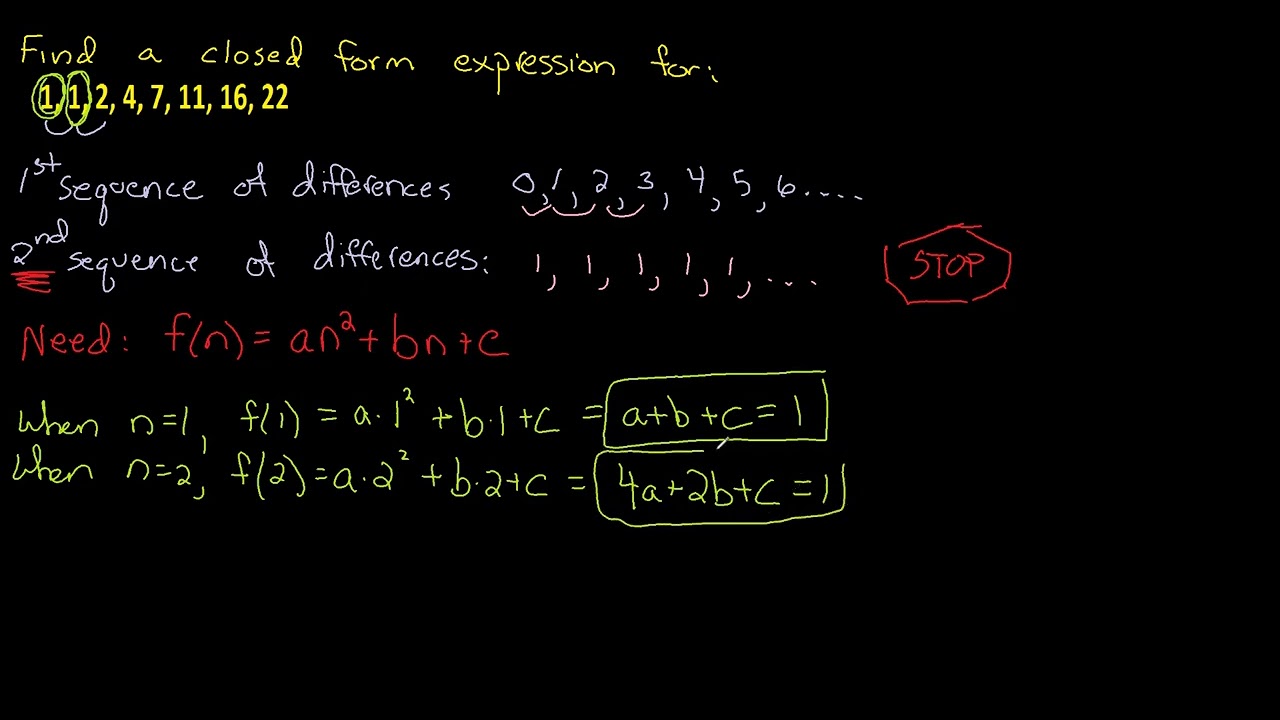 Find a closed form expression for:
1, 1, 2, 4, 7, 11, 16, 22
1st sequence of differences 0, 1, 2, 3, 4, 5, 6....
2nd sequence of differences: 1, 1, 1, 1, 1, ...
STOP
Need: f(n) = an² + bn + c
When n=1, f(1) = a·1² + b·1 + c = a+b+c = 1
When n=2, f(2) = a·2² + b·2 + c = 4a+2b+c = 1